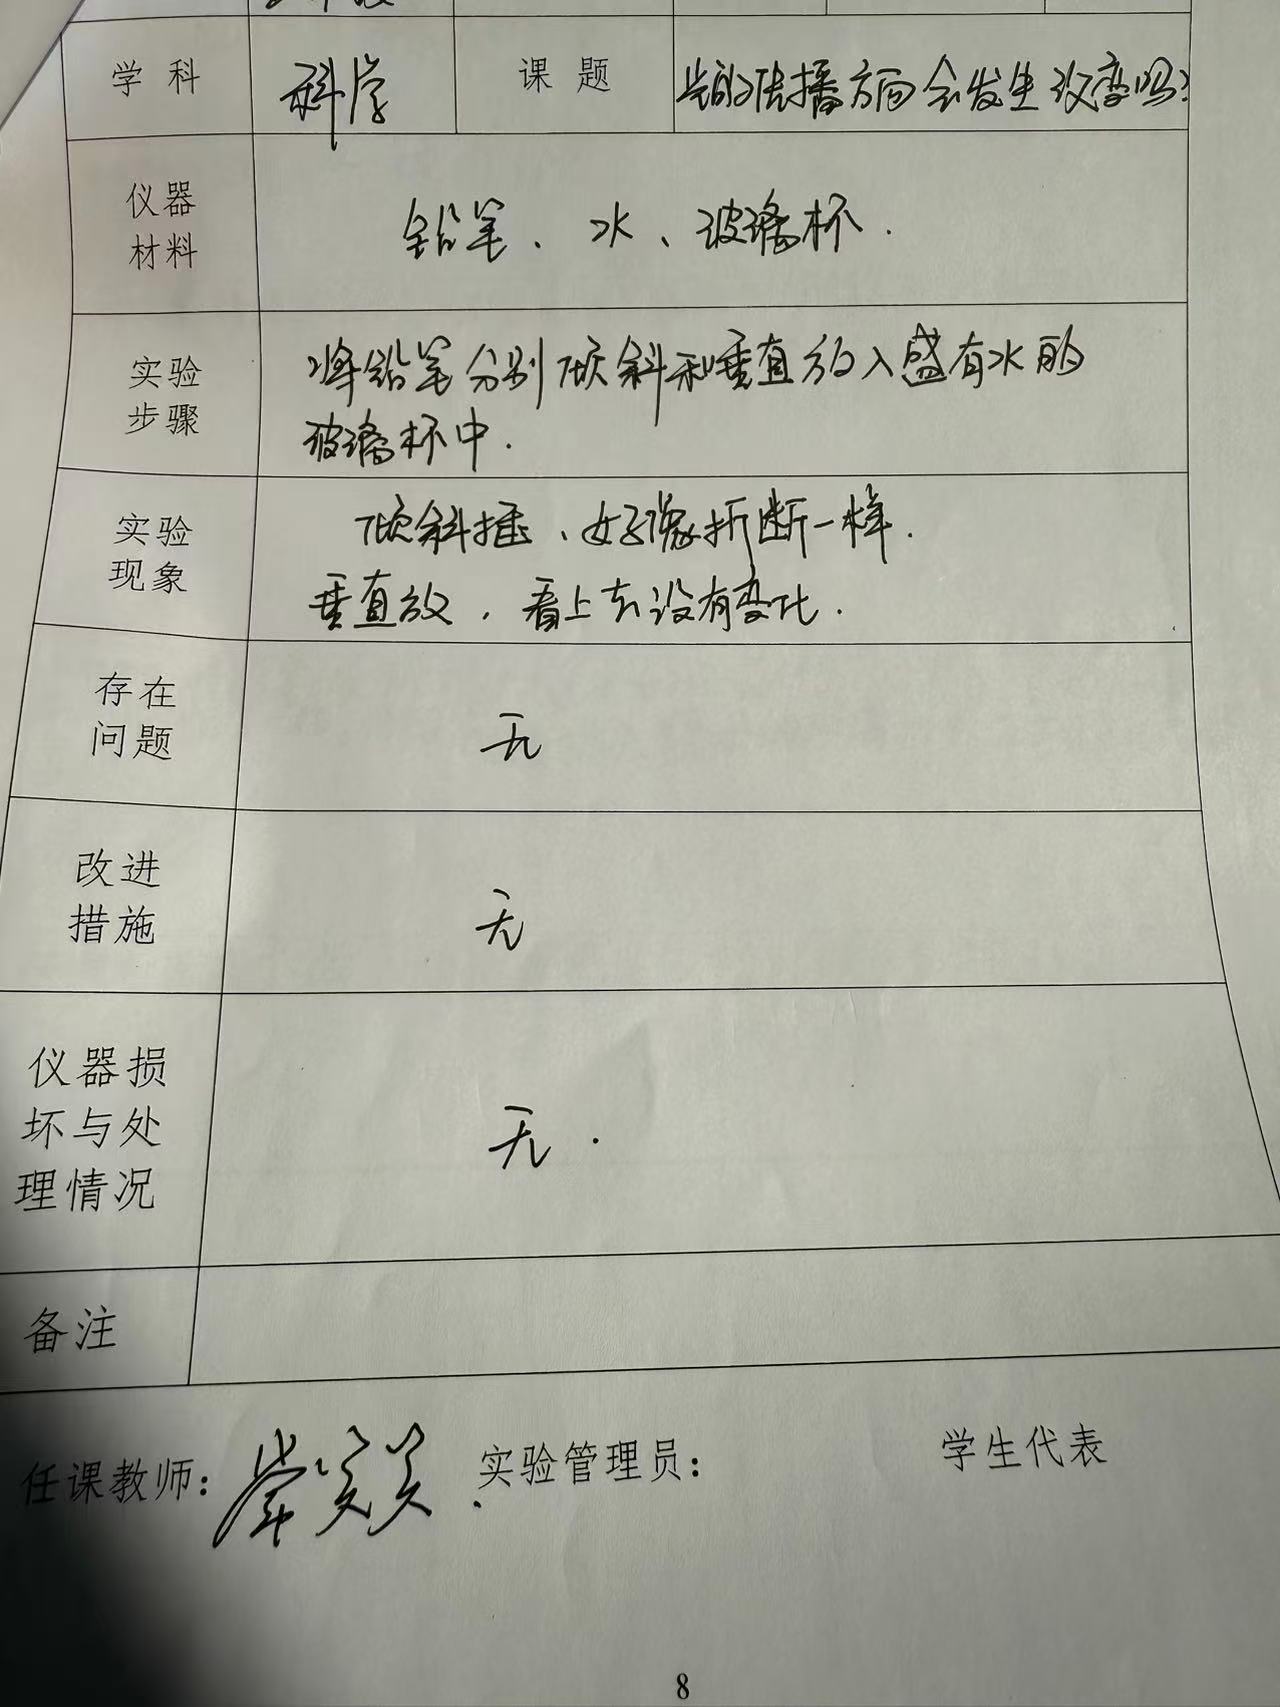 学科 科学 课题 光的传播方向会发生改变吗?
仪器
材料
铅笔、水、玻璃杯.
实验
步骤
将铅笔分别倾斜和垂直放入盛有水的
玻璃杯中.
实验
现象
倾斜插、好像折断一样.
垂直放,看上去没有变化.
存在
问题
无
改进
措施
无
仪器损
坏与处
理情况
无.
备注
任课教师: 实验管理员: 学生代表
8